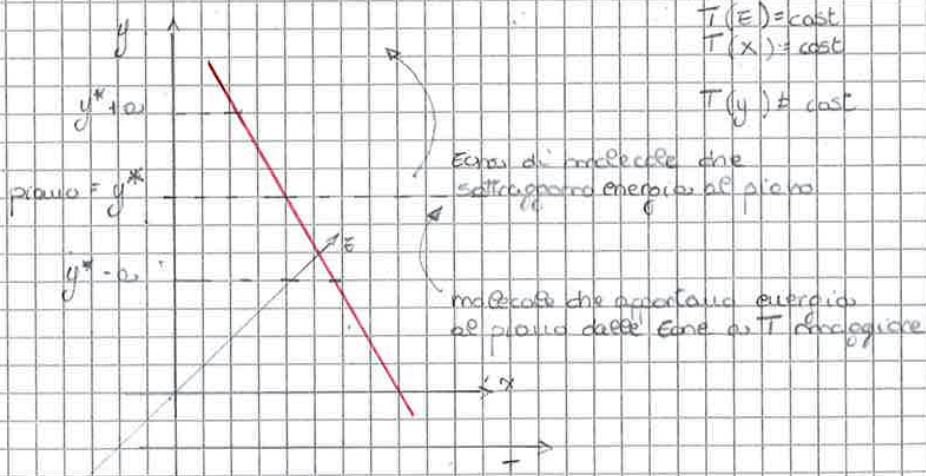 T(z) = cost
T(x) = cost
T(y) ≠ cost
y
y* + a
piano = y*
y* - a
z
x
T
zona di molecole che
sottraggono energia al piano
molecole che apportano energia
al piano dalle zone a T maggiore